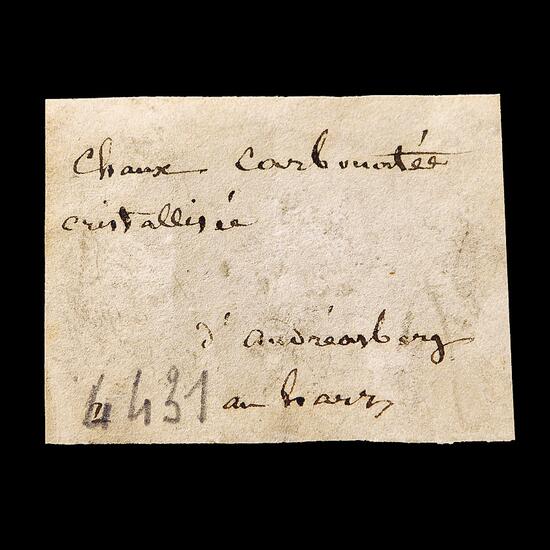 Chaux Carbonatée
cristallisée
d'andréasberg
4431 au harz